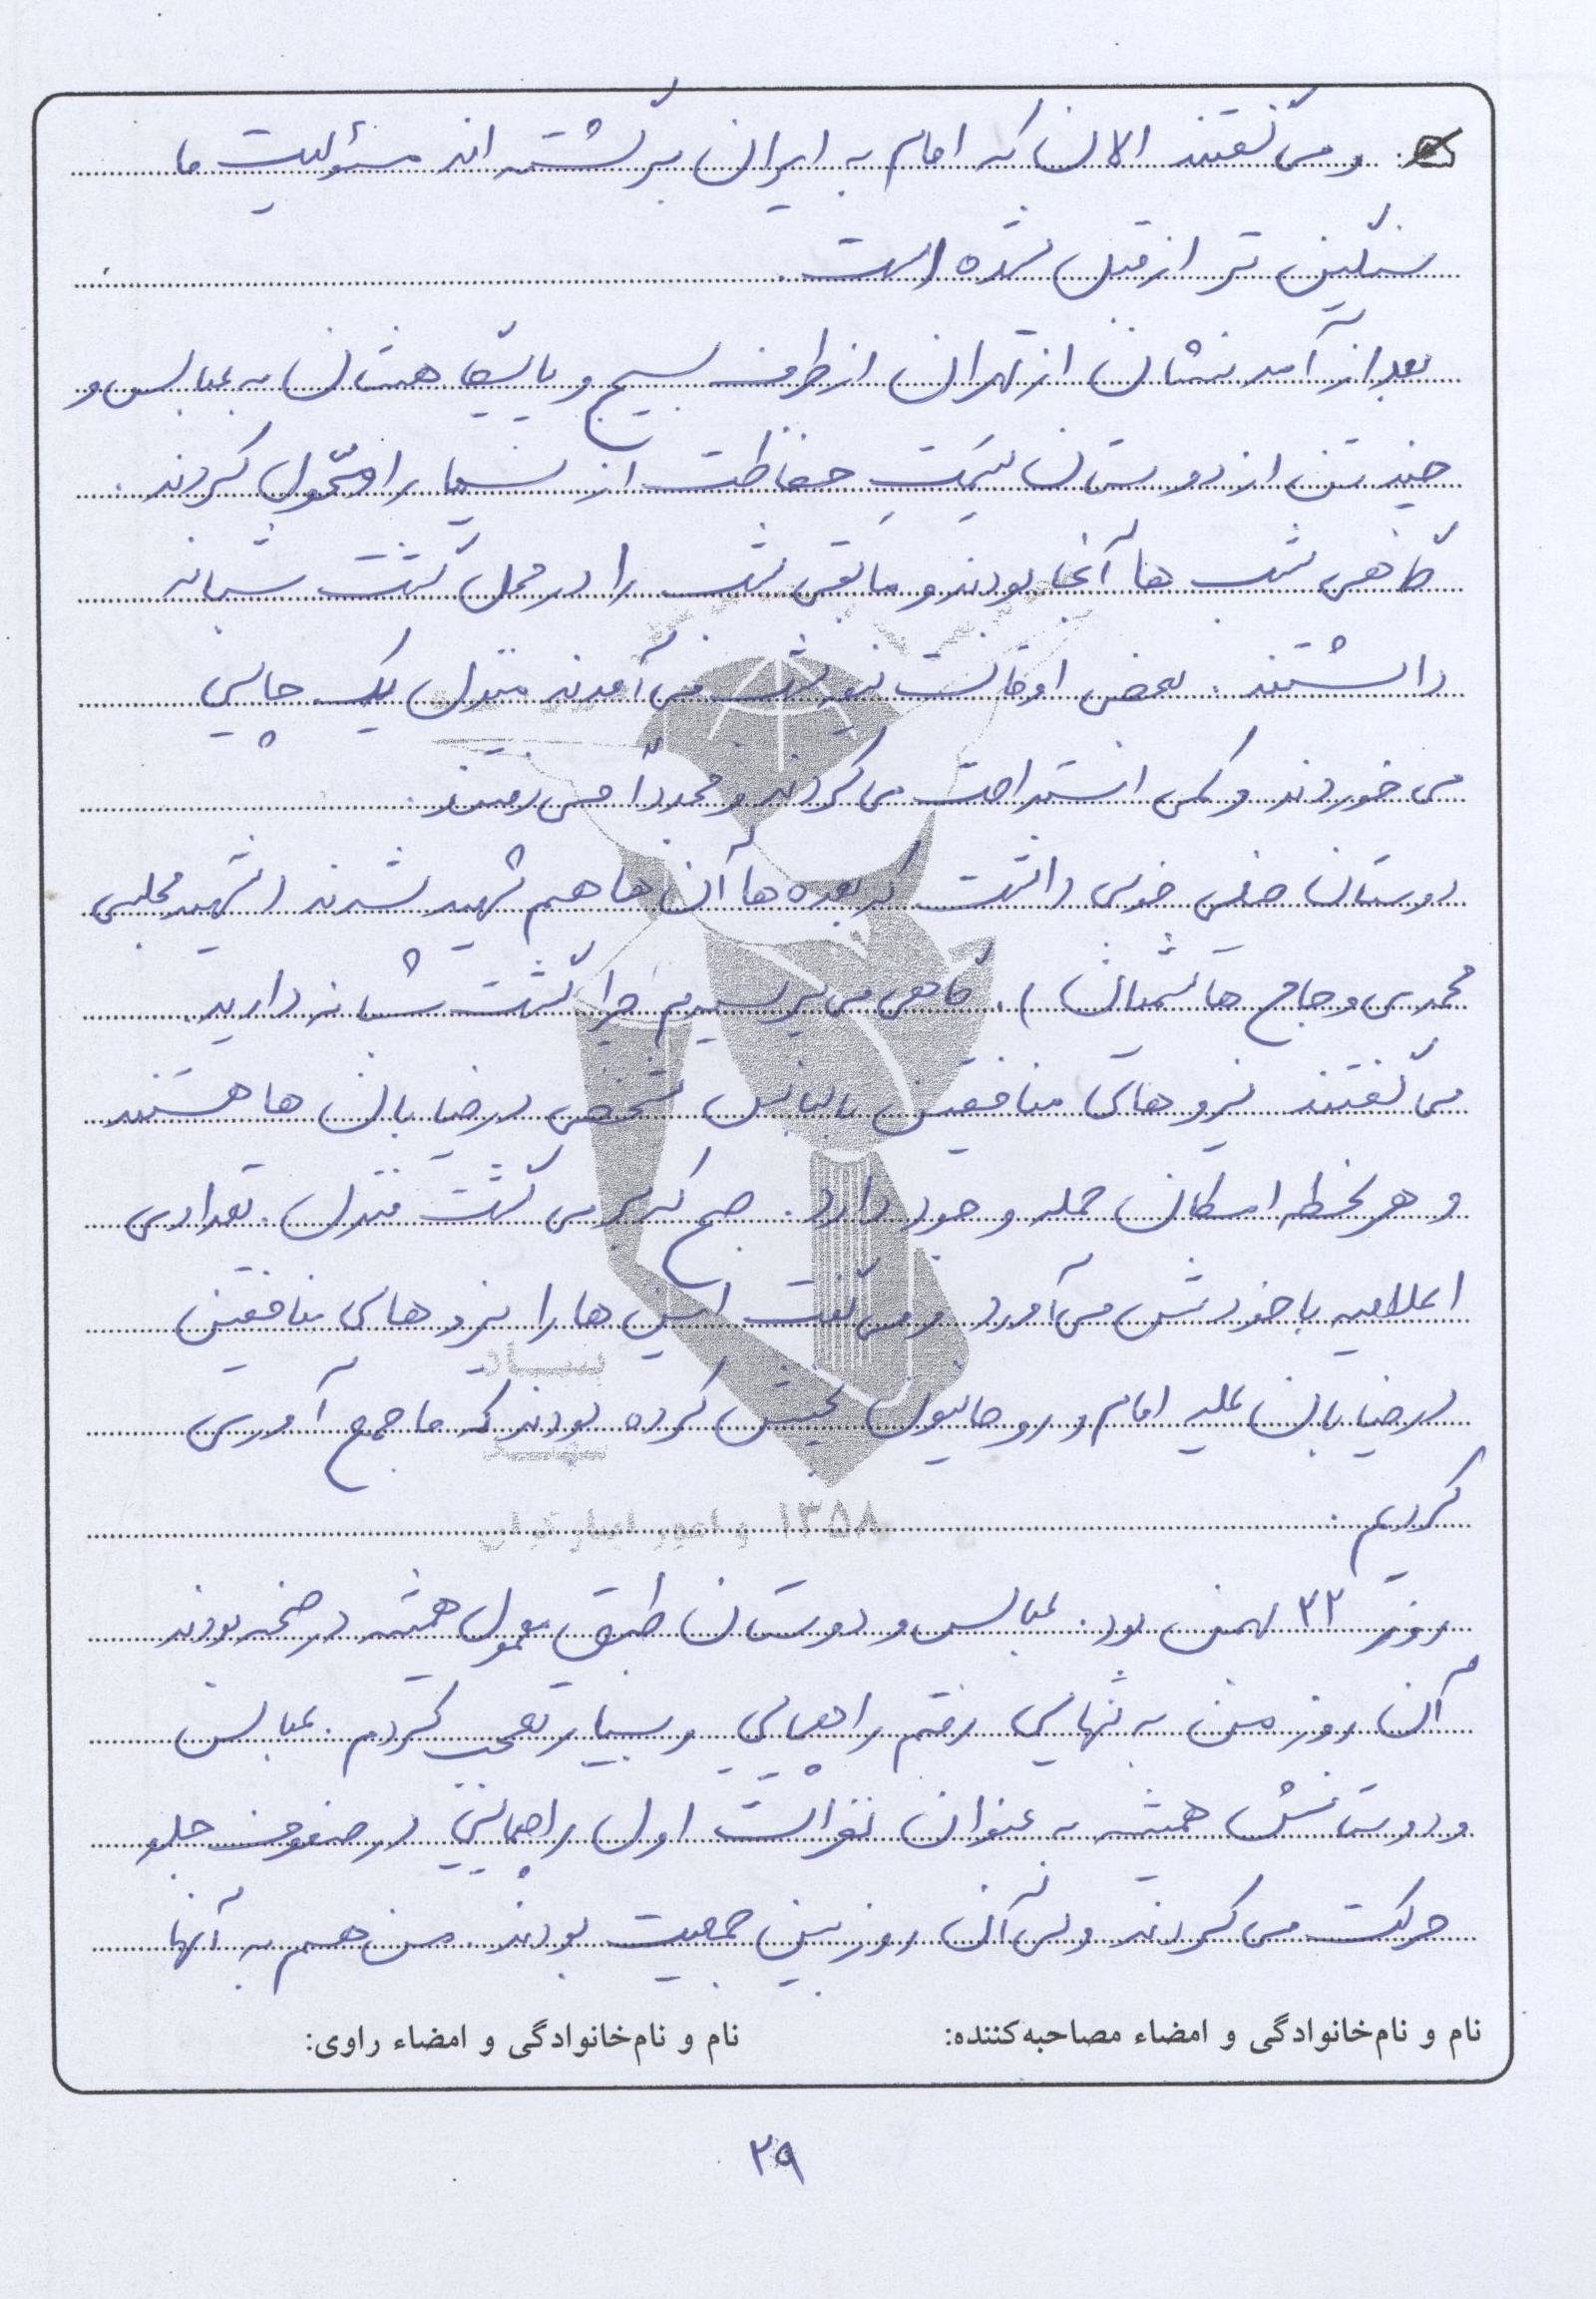 و می گفتند الان که امام به ایران برگشته اند مسئولیت ما
سنگین تر از قبل شده است.
بعد از آمدنشان از تهران از طرف بسیج و پایگاهشان به عباس و
چند تن از دوستان سمت حفاظت از سیما را محول کردند.
گاهی شب ها آنجا بودند و مابقی شب را در محل گشت شبانه
داشتند. بعضی اوقات نیمه شب می آمدند منزل یک چایی
می خوردند و کمی استراحت می کردند و مجدداً می رفتند.
دوستان خیلی خوبی داشت که بعدها آن ها هم شهید شدند (شهید مجلسی
محمدی و حاج هاشمیان). گاهی می پرسیدم چرا گشت شبانه دارید.
می گفتند نیروهای منافقین با لباس شخصی در خیابان ها هستند
و هر لحظه امکان حمله وجود دارد. صبح که برمی گشت منزل. تعدادی
اعلامیه با خودش می آورد و می گفت این ها را نیروهای منافقین
در خیابان علیه امام و روحانیون پخش کرده بودند که ما جمع آوری
کردیم.
روز ۲۲ بهمن بود. عباس و دوستان طبق معمول همیشه در صحنه بودند
آن روز من به تنهایی رفتم راهپیمایی و بسیار تعجب کردم. عباس
و دوستانش همیشه به عنوان نفرات اول راهپیمایی در صفوف جلو
حرکت می کردند ولی آن روز بین جمعیت بودند. من هم به آنها
نام و نام‌خانوادگی و امضاء مصاحبه‌کننده: نام و نام‌خانوادگی و امضاء راوی:
۲۹
بنیاد
شهید
و امور ایثارگران ۱۳۵۸